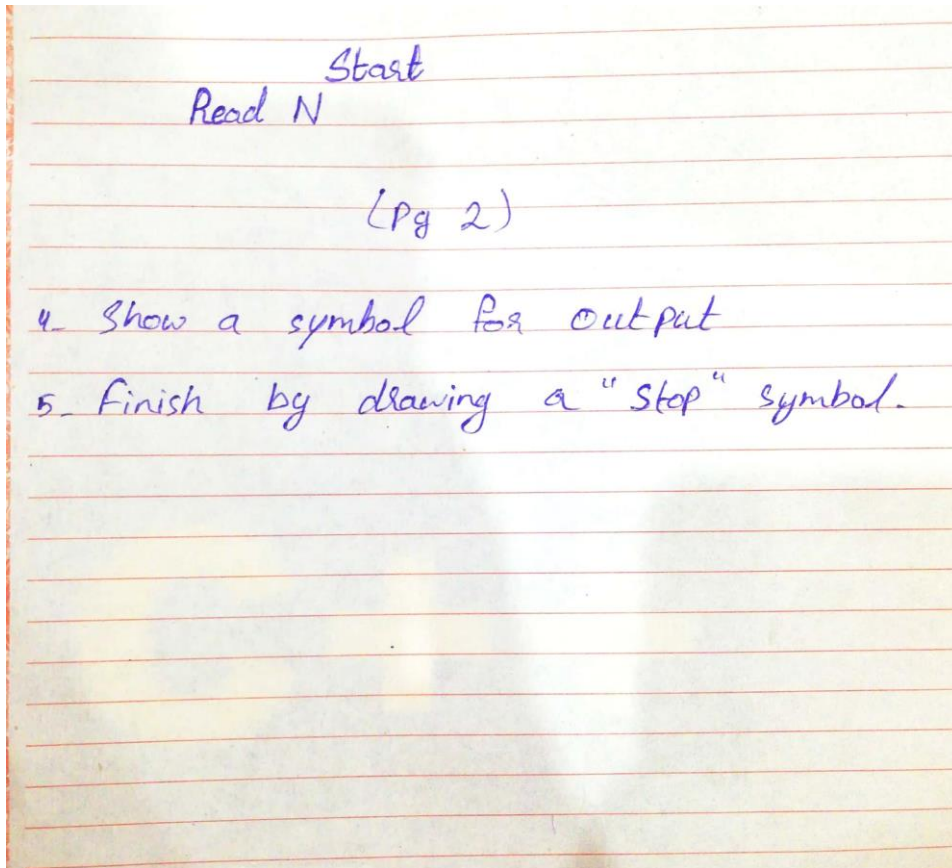 Start
Read N
(Pg 2)
4- Show a symbol for output
5- Finish by drawing a "Stop" symbol.